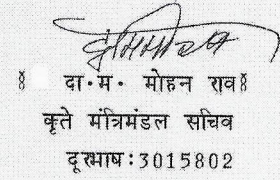 दा·म· मोहन राव
कृते मंत्रिमंडल सचिव
दूरभाष:3015802